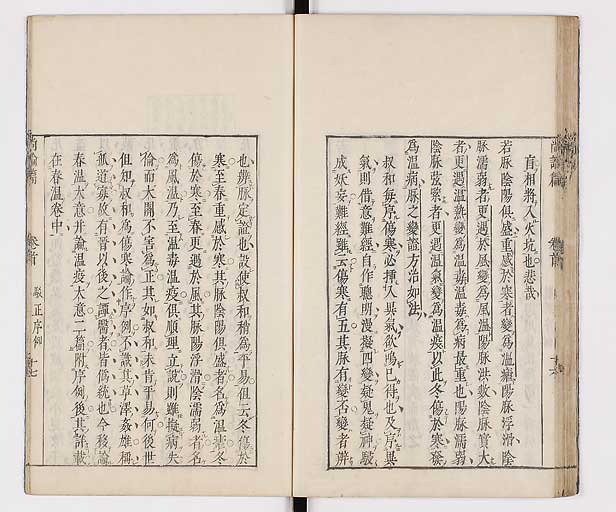 盲相將入火坑也悲哉
若脉陰陽俱盛重感於寒者變為溫瘧陽脉浮滑陰
脉濡弱者更遇於風變為風溫陽脉洪數陰脉實大
者更遇溫熱變為溫毒溫毒為病最重也陽脉濡弱
陰脉弦緊者更遇溫氣變為溫疫以此冬傷於寒發
為溫病脉之變證方治如法
叔和每序傷寒必插入異氣欲鳴已得也及序異
氣則借意難經自作聰明漫擬四變疑鬼疑神駸
成妖妄難經雖云傷寒有五其脉有變否變者辨
也辨脉定證也設使叔和稍為平易但云冬傷於
寒至春重感於寒其脉陰陽俱盛者名為溫瘧冬
傷於寒至春更遇於風其脉陽浮滑陰濡弱者名
為風溫乃至溫毒溫疫俱順理立說則雖擬病失
倫而大關不害為正其如叔和未肯平易何後世
但知叔和為傷寒論作序例不識其草澤奸雄稱
孤道寡故有晉以後之譚醫者皆偽統也今移論
春溫大意并論溫疫大意二篇附序例後其詳載
在春溫卷中
尚論篇
卷首
駁正序例